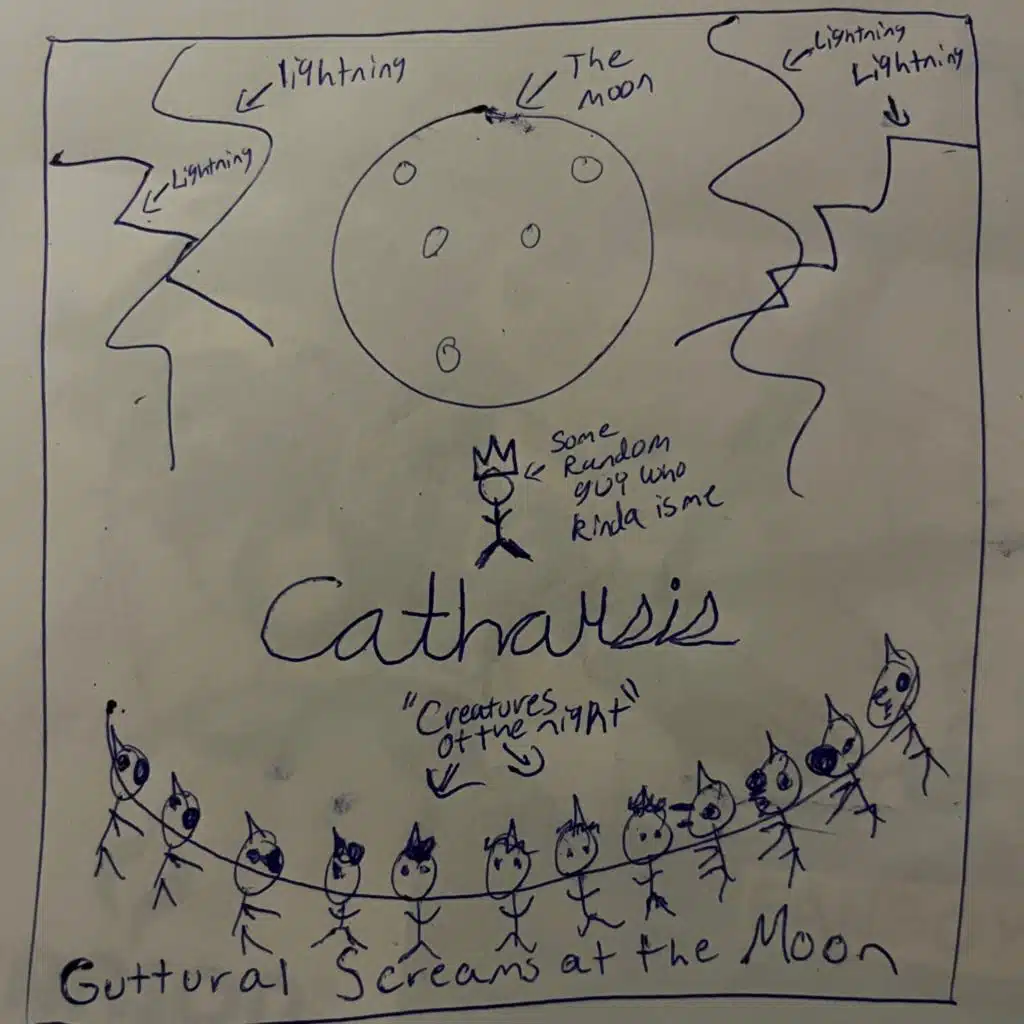 Lightning
The
Moon
Lightning
Lightning
Lightning
Some
Random
guy who
kinda is me
Catharsis
"Creatures
of the night"
Guttural Screams at the Moon